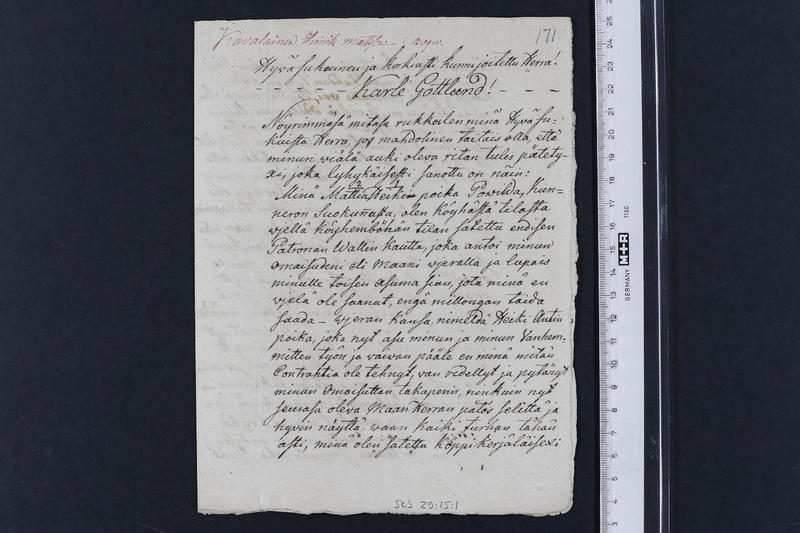 Kavalainen, Henrik Mattsson
171
Hyvä sukuinen ja korkiasti kunnijoitettu Herra!
Karle Gottlund!
Nöyrimmäsä mitasa rukkoilen minä Hyvä su-
kuista Herra, jos mahdolinen taitais olla, että
minun wiälä auki oleva ritan tulis pätety-
xi, joka lyhykäisesti sanottu on näin:
Minä Mattia Heiki poika Powilda, Kun-
neron Suokunasta, olen köyhästä tilasta
wjellä köyhembähän tilan satettu endisen
Patronan Wallin kautta, joka antoi minun
omaisudeni eli Maani wjeralla ja lupais
minulle toisen asuma sian, jota minä en
wjelä ole saanut, engä millongan taida
saada – wjeran kansa, nimeldä Heiki Antin
poika, joka nyt asu minun ja minun Vanhem-
mitten työn ja vaivan pääle en minä mitän
Contrahtia ole tehnyt, van vedellyt ja pytänyt
minun omaisuttan takaperin, ninkuin nyt
seurasa oleva Maan Herran pätös selittä ja
hyvin näyttä, waan kaiki turhan tähän
asti, minä olen satettu köppi kerjäläisexi
SKS 29:15:1